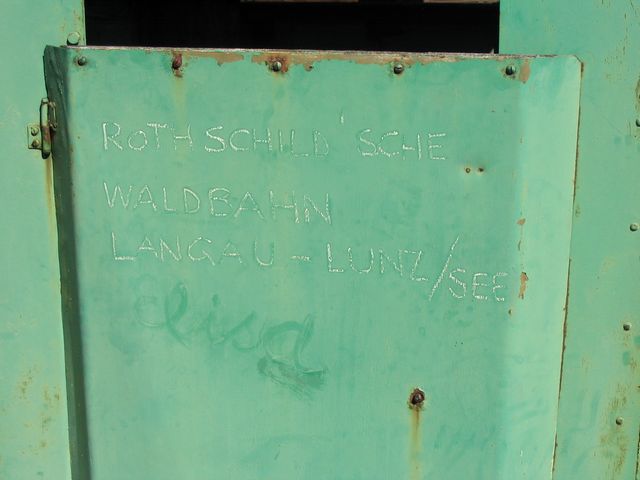 ROTHSCHILD'SCHE
WALDBAHN
LANGAU - LUNZ/SEE
Elisa